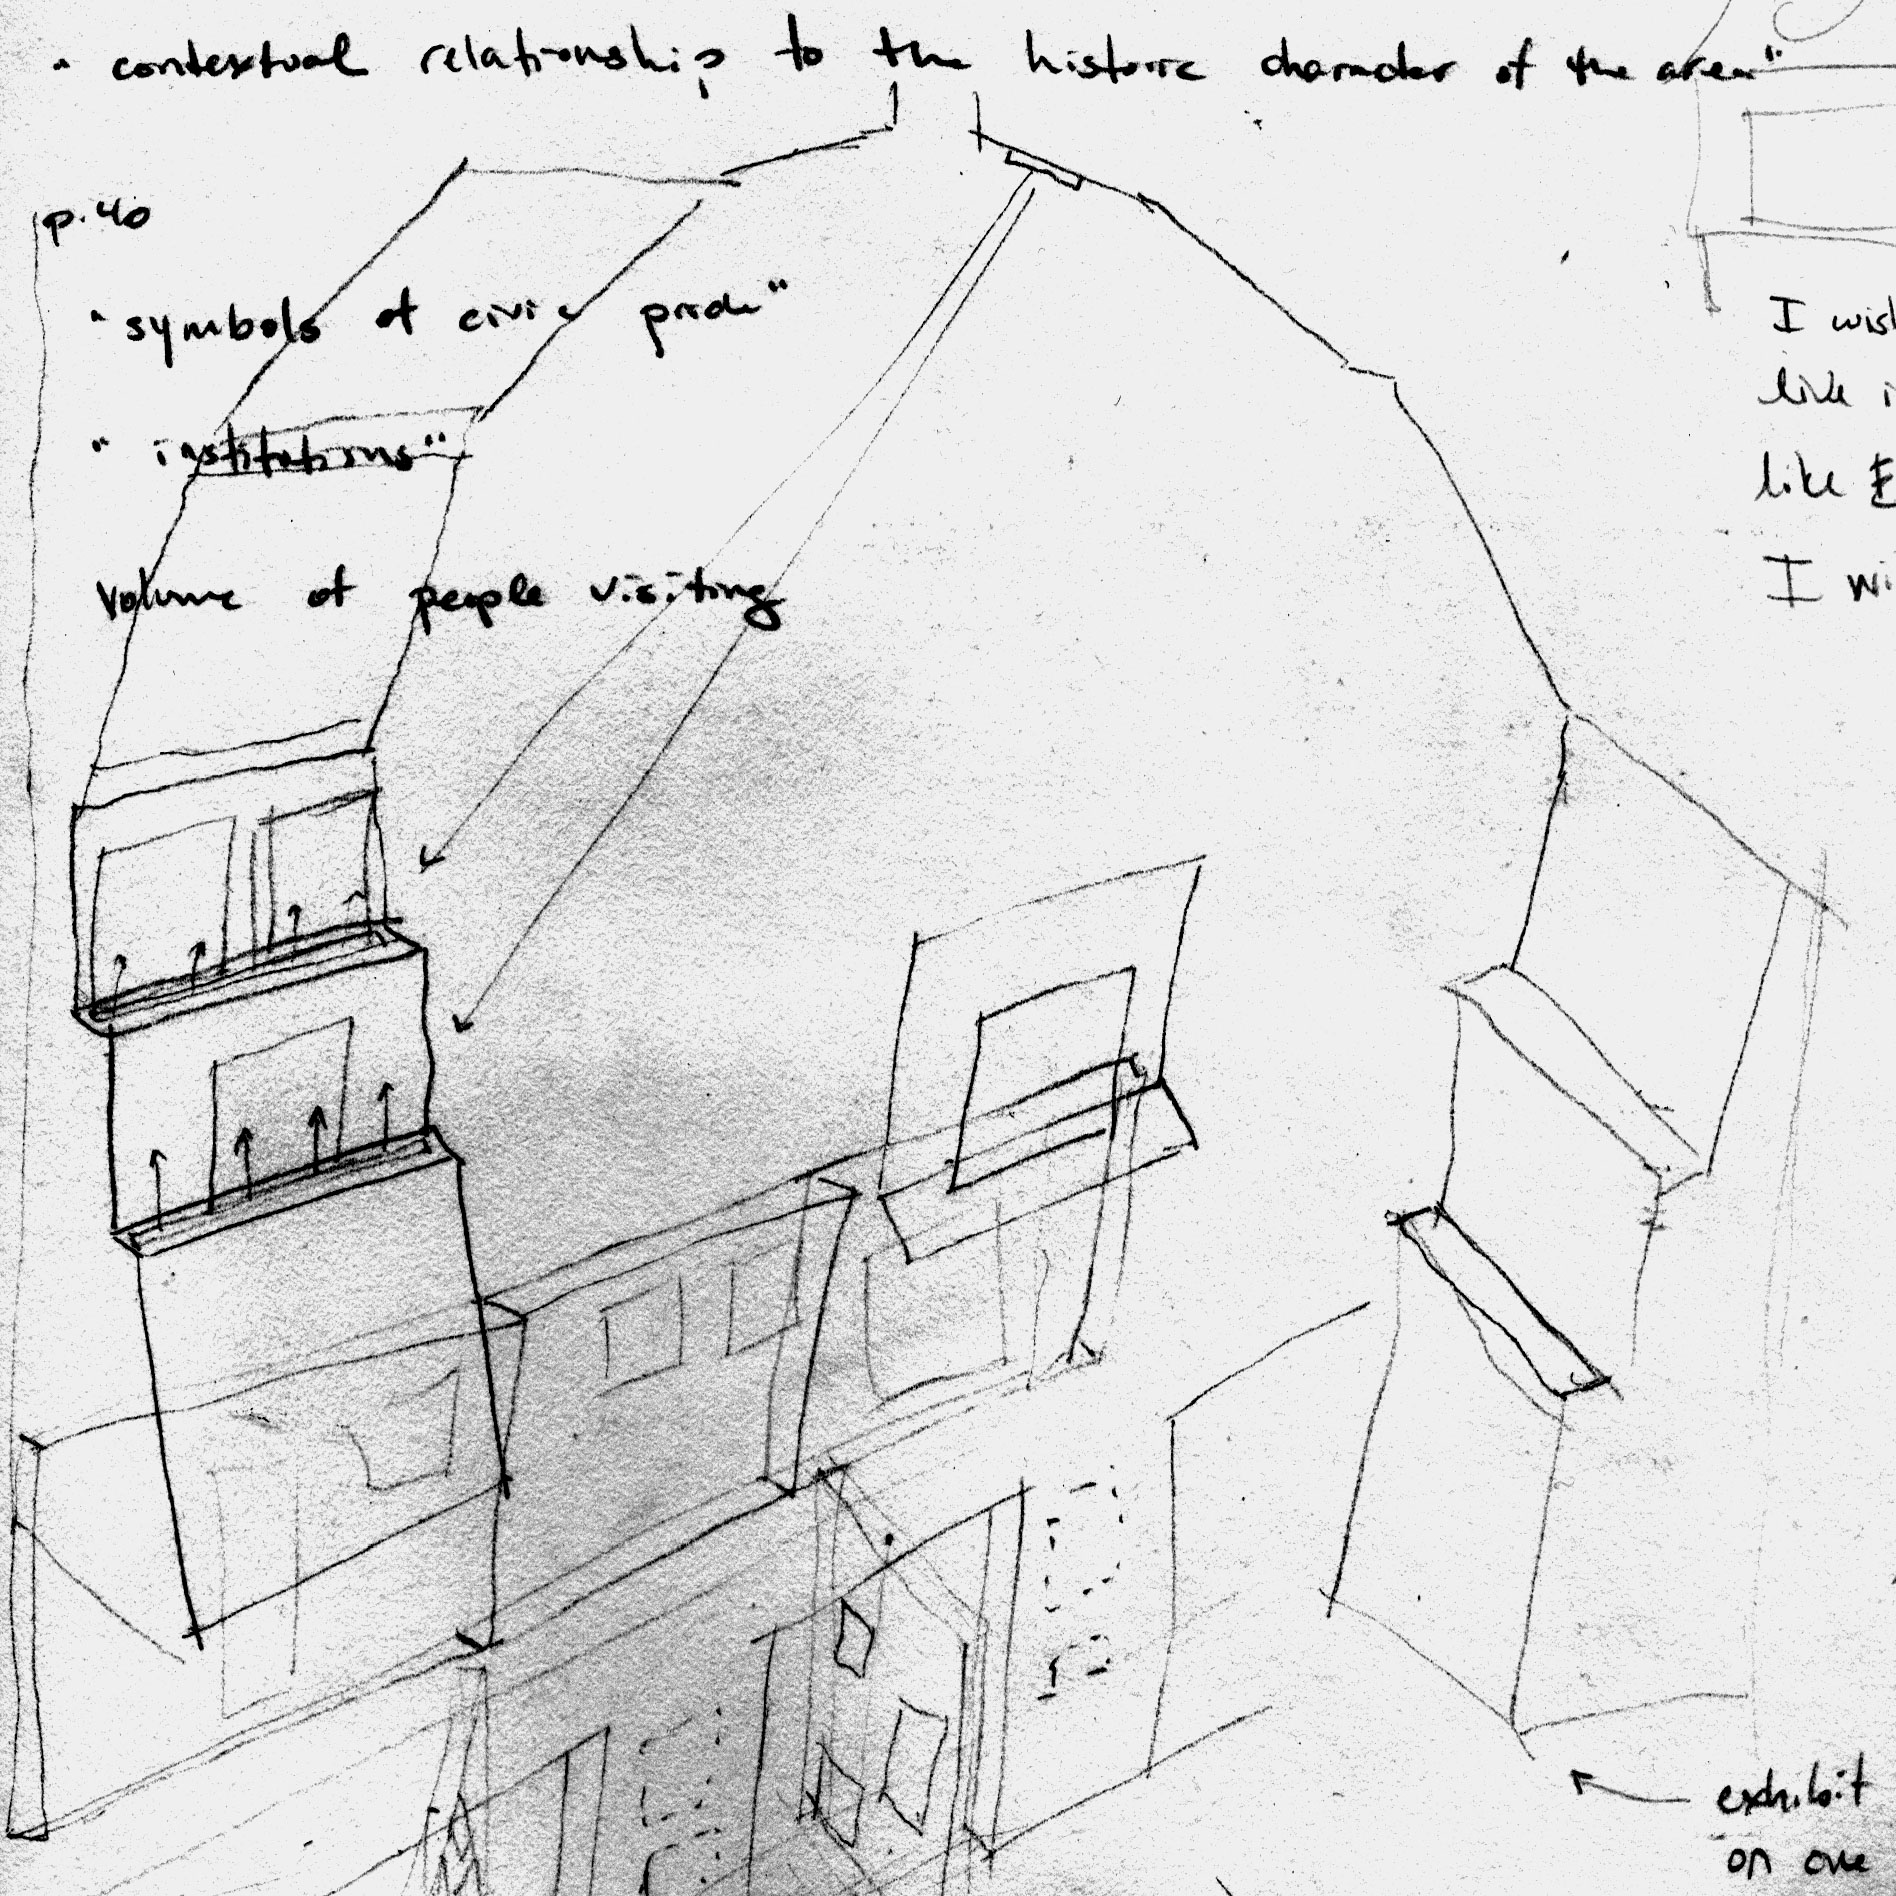 " contextual relationship to the historic character of the area"
p.40
"symbols of civic pride"
"institutions"
Volume of people visiting
I wish
like i
like E
I wi
exhibit
on one